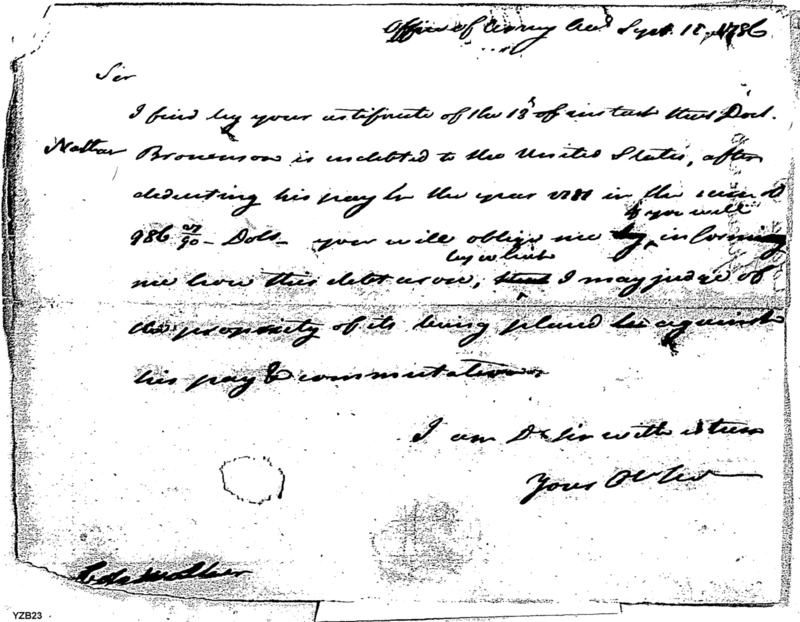 Office of Army Accts Sept. 15. 1786
Sir
I find by your certificate of the 13th of instant that Doct.
Nathan Bronenson is indebted to the United States, after
deducting his pay for the year 1781 in the sum of
986 /90 Dolls you will oblige me by if you will informing
me how this debt arose, that by which I may judge of
the propriety of its being placed against
his pay & commutation
I am Dr Sir with esteem
Your Ob Ser
Colo Walker
YZB23